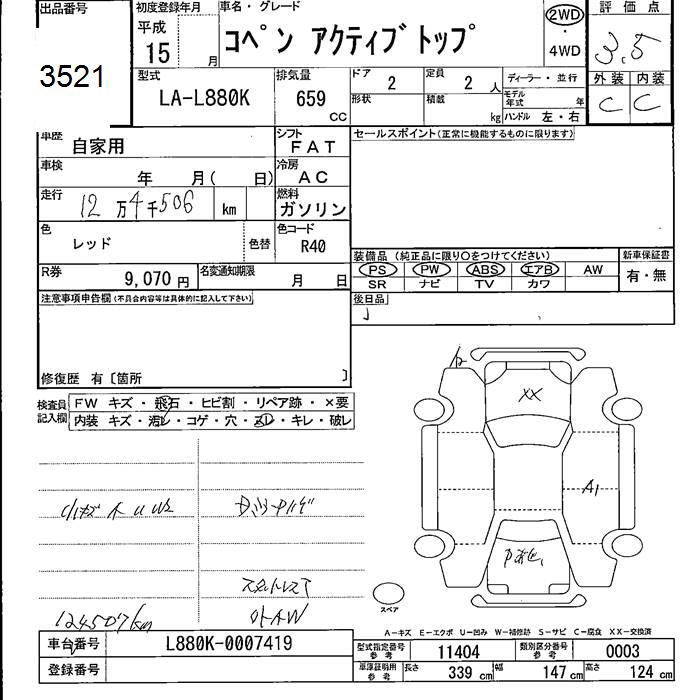 出品番号
3521
初度登録年月
平成
15 月
車名・グレード
コペン アクティブトップ
2WD
・
4WD
評価点
3.5
外装 内装
C C
型式
LA-L880K
排気量
659
CC
ドア
2
定員
2 人
ディーラー・並行
形状
積載
kg
モデル
年式 年
ハンドル 左・右
車歴
自家用
シフト
FAT
セールスポイント(正常に機能するものに限ります)
車検
年 月( 日)
冷房
AC
走行
12万4千506
km
燃料
ガソリン
色
レッド
色替
色コード
R40
R券
9,070 円
名変通知期限
月 日
装備品 (純正品に限り○をつけてください)
PS PW ABS エアB AW
SR ナビ TV カワ
新車保証書
有・無
注意事項申告欄(不具合内容等は具体的に記入して下さい)
後日品
修復歴 有〔箇所 〕
検査員
記入欄
FW キズ・飛石・ヒビ割・リペア跡・×要
内装 キズ・汚レ・コゲ・穴・スレ・キレ・破レ
XX
A1
124507km
スペア
A-キズ E-エクボ U-凹み W-補修跡 S-サビ C-腐食 XX-交換済
車台番号
L880K-0007419
型式指定番号
参考
11404
類別区分番号
参考
0003
登録番号
車庫証明用
参考
長さ 339 cm 幅 147 cm 高さ 124 cm